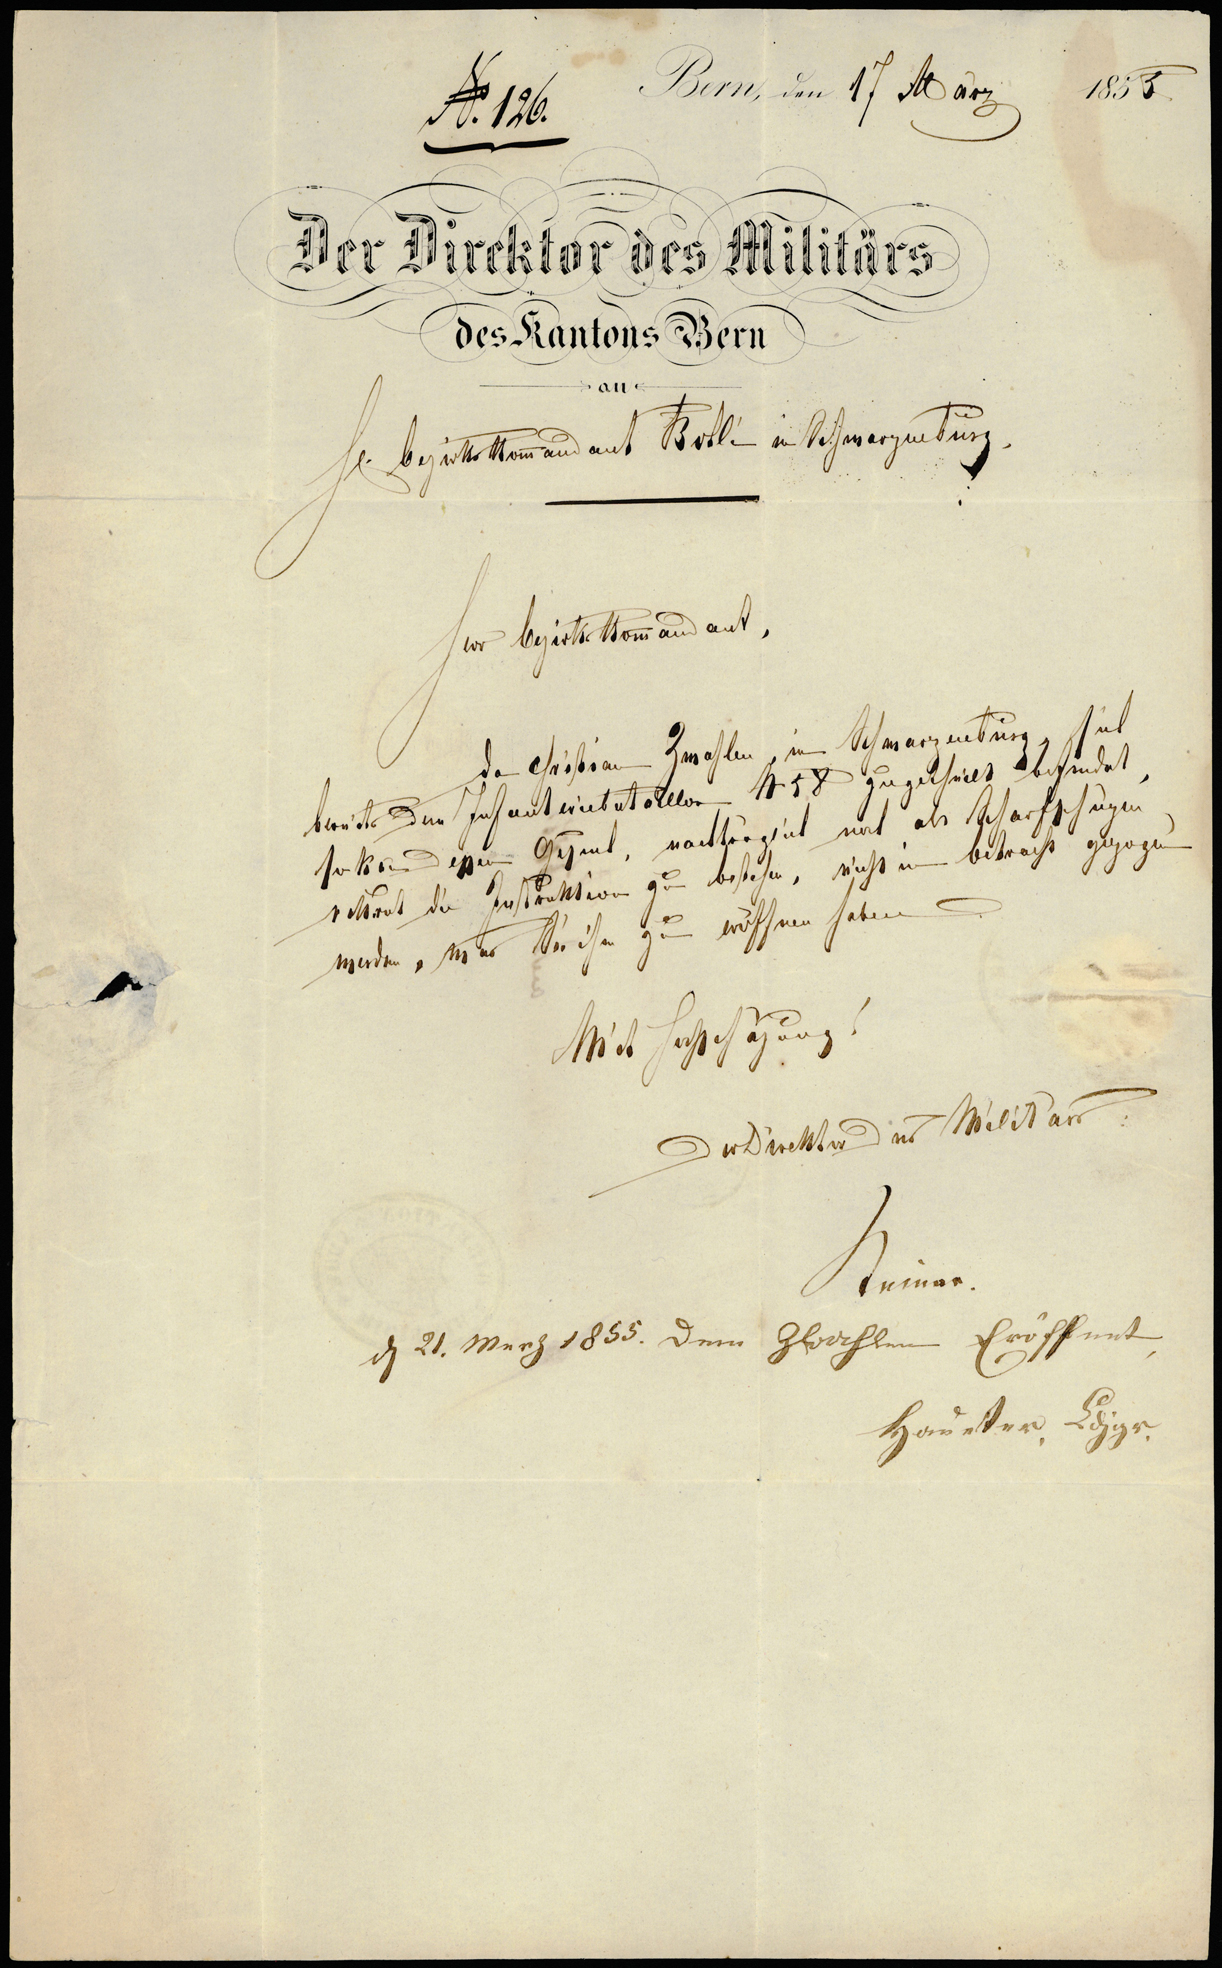 Bern, den 17 März 1855
No. 126.
Der Direktor des Militärs
des Kantons Bern
an
Hr. Bezirkskom̅andant in Schwarzenburg.
Herr Bezirkskom̅andant,
Da Christian Zwahlen, in Schwarzenburg, sich
bereits dem Infanteriebataillon No 58 zugetheilt befindet,
so kann dessen Gesuch, nachträglich noch als Scharfschüzen
rekrut die Instruktion zu bestehen, nicht in Betracht gezogen
werden, was Sie ihm zu eröffnen haben
Mit Hochschäzung!
Der Direktor des Militärs:
Steiner.
21. Merz 1855. Dem Zwahlen Eröffnet,
Hauetter,